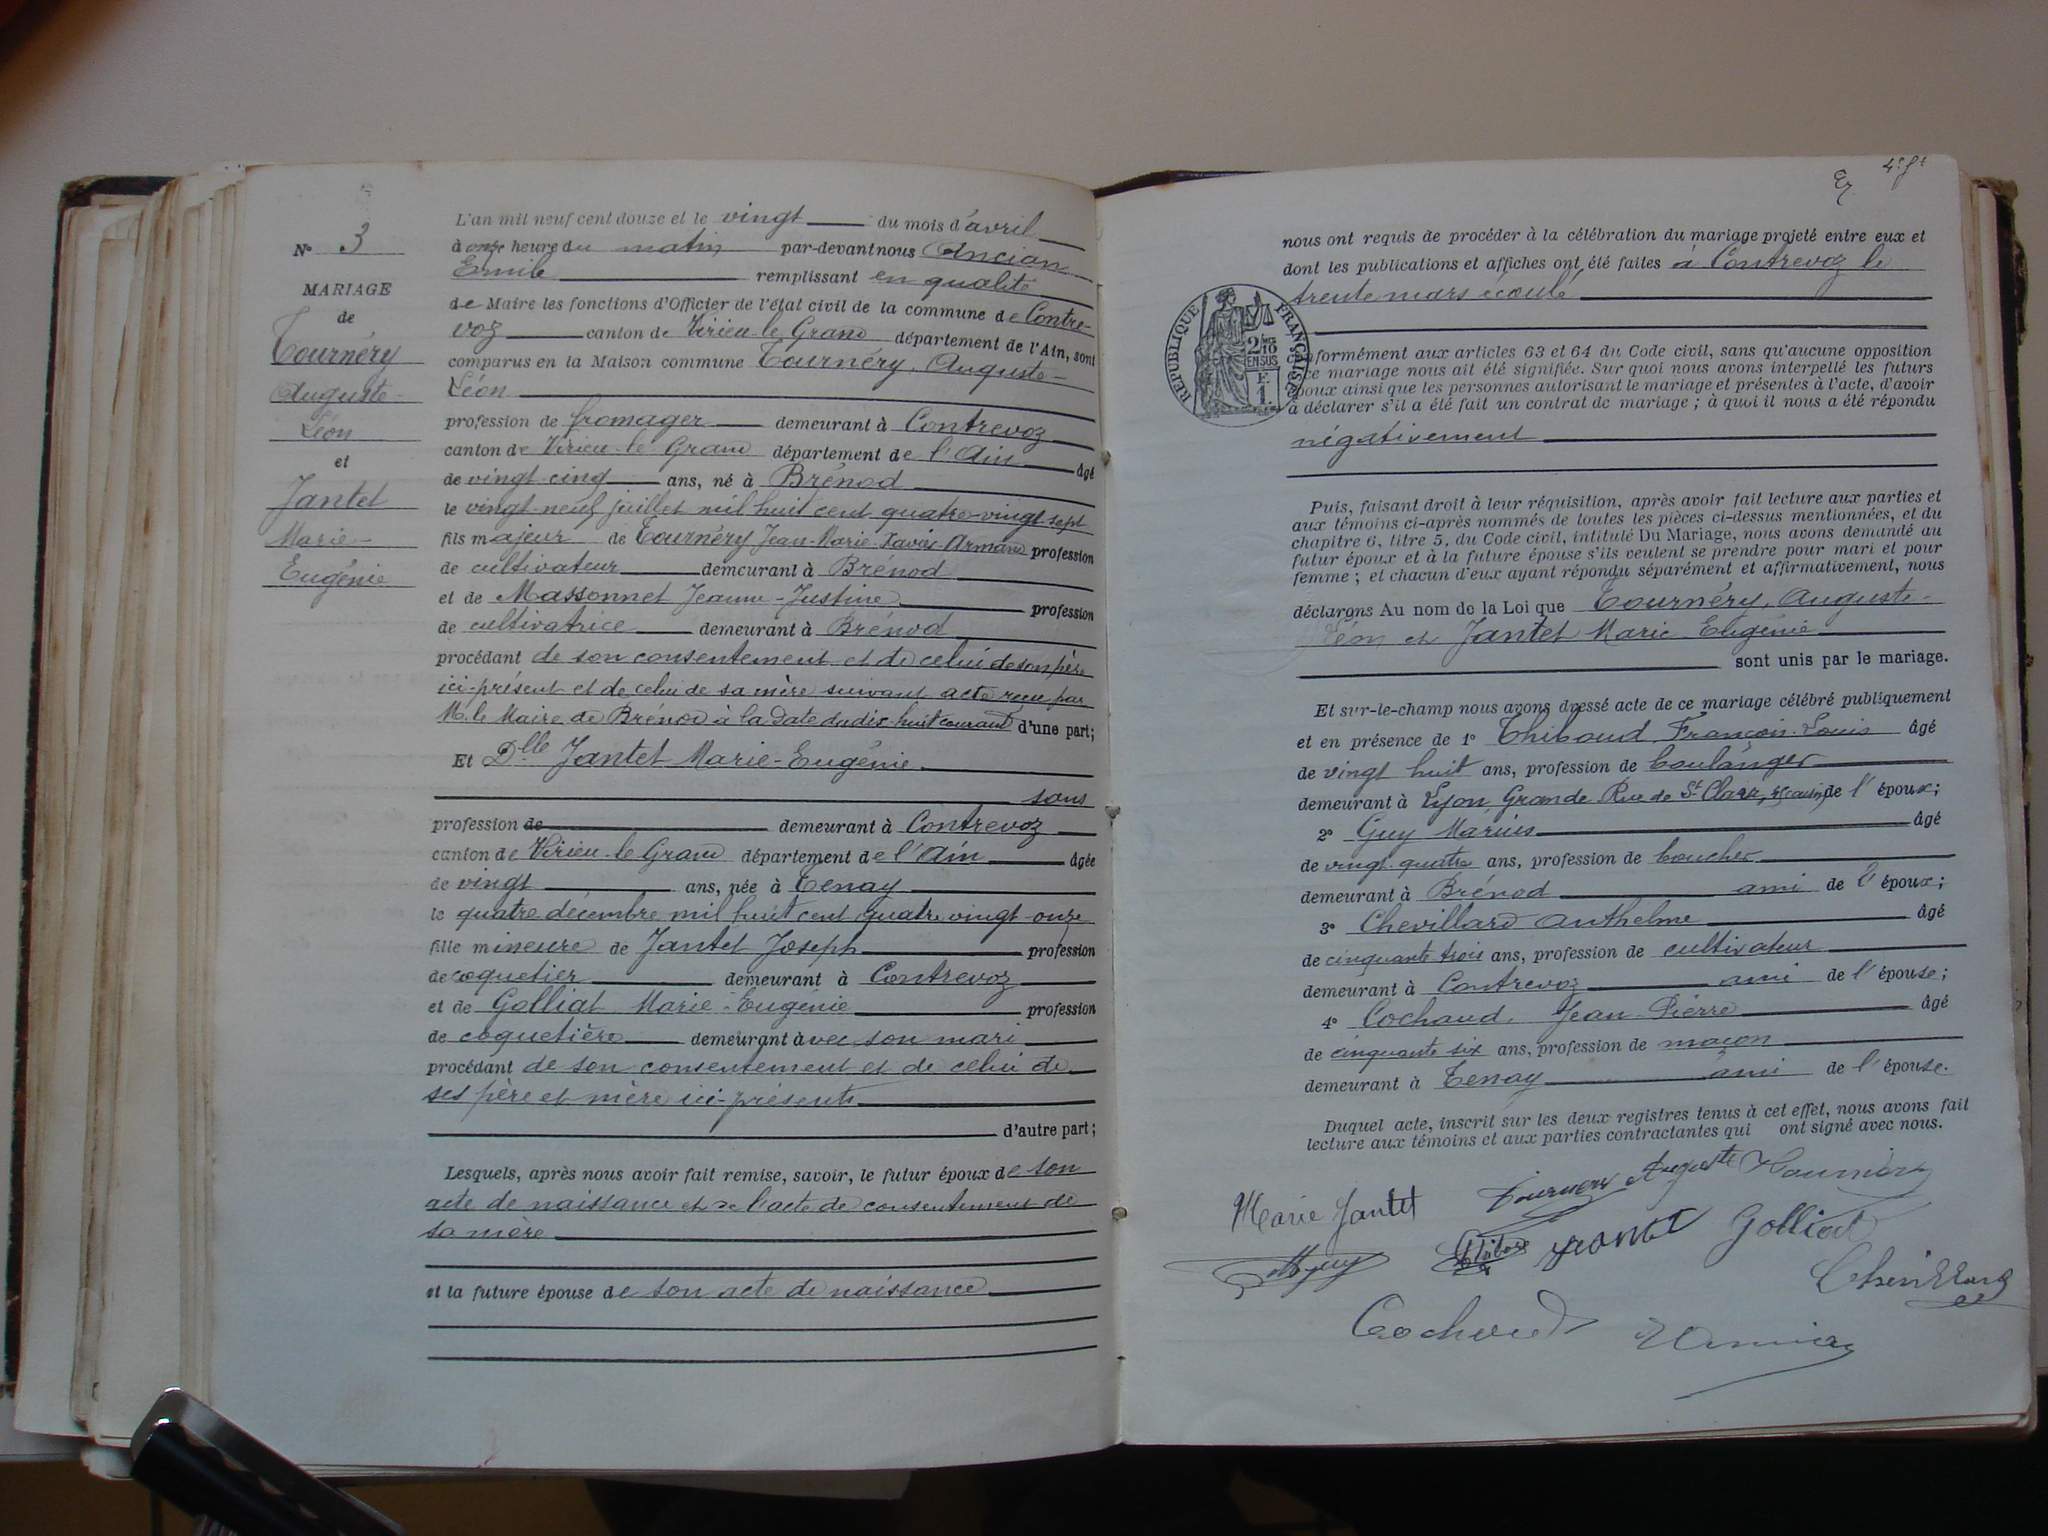 N° 3
MARIAGE
de
Tournéry
Auguste-
Léon
et
Jantet
Marie-
Eugénie
L'an mil neuf cent douze et le vingt du mois d'avril
à onze heure du matin par-devant nous Ancian
Emile remplissant en qualité
de Maire les fonctions d'Officier de l'état civil de la commune de Contre-
voz canton de Virieu-le-Grand département de l'Ain, sont
comparus en la Maison commune Tournéry, Auguste-
Léon
profession de fromager demeurant à Contrevoz
canton de Virieu-le-Grand département de l'Ain âgé
de vingt-cinq ans, né à Brénod
le vingt-neuf juillet mil huit cent quatre-vingt sept
fils majeur de Tournéry Jean-Marie-Xavier Armand profession
de cultivateur demeurant à Brénod
et de Massonnet Jeanne-Justine profession
de cultivatrice demeurant à Brénod
procédant de son consentement et de celui de son père
ici-présent et de celui de sa mère suivant acte reçu par
M. le Maire de Brénod à la date du dix huit courant d'une part;
Et Dlle Jantet Marie-Eugénie
sans
profession de demeurant à Contrevoz
canton de Virieu-le-Grand département de l'Ain âgée
de vingt ans, née à Tenay
le quatre décembre mil huit cent quatre vingt-onze
fille mineure de Jantet Joseph profession
de coquetier demeurant à Contrevoz
et de Golliat Marie-Eugénie profession
de coquetière demeurant avec son mari
procédant de son consentement et de celui de
ses père et mère ici-présents
d'autre part;
Lesquels, après nous avoir fait remise, savoir, le futur époux de son
acte de naissance et de l'acte de consentement de
sa mère
et la future épouse de son acte de naissance
nous ont requis de procéder à la célébration du mariage projeté entre eux et
dont les publications et affiches ont été faites à Contrevoz le
trente mars écoulé
RÉPUBLIQUE FRANÇAISE
2/10
EN SUS
F.
1
formément aux articles 63 et 64 du Code civil, sans qu'aucune opposition
ce mariage nous ait été signifiée. Sur quoi nous avons interpellé les futurs
époux ainsi que les personnes autorisant le mariage et présentes à l'acte, d'avoir
à déclarer s'il a été fait un contrat de mariage; à quoi il nous a été répondu
négativement
Puis, faisant droit à leur réquisition, après avoir fait lecture aux parties et
aux témoins ci-après nommés de toutes les pièces ci-dessus mentionnées, et du
chapitre 6, titre 5, du Code civil, intitulé Du Mariage, nous avons demandé au
futur époux et à la future épouse s'ils veulent se prendre pour mari et pour
femme; et chacun d'eux ayant répondu séparément et affirmativement, nous
déclarons Au nom de la Loi que Tournéry, Auguste-
Léon et Jantet Marie-Eugénie
sont unis par le mariage.
Et sur-le-champ nous avons dressé acte de ce mariage célébré publiquement
et en présence de 1° Thibaud François-Louis âgé
de vingt huit ans, profession de boulanger
demeurant à Lyon, Grande Rue de St Clair, cousin de l'époux;
2° Guy Marius âgé
de vingt-quatre ans, profession de boucher
demeurant à Brénod ami de l'époux;
3° Chevillard Anthelme âgé
de cinquante trois ans, profession de cultivateur
demeurant à Contrevoz ami de l'épouse;
4° Cochaud, Jean-Pierre âgé
de cinquante six ans, profession de maçon
demeurant à Tenay ami de l'épouse.
Duquel acte, inscrit sur les deux registres tenus à cet effet, nous avons fait
lecture aux témoins et aux parties contractantes qui ont signé avec nous.
Marie Jantet Tournery Auguste Tournéry
MGuy Jantet Golliat
Chevillard
Cochaud